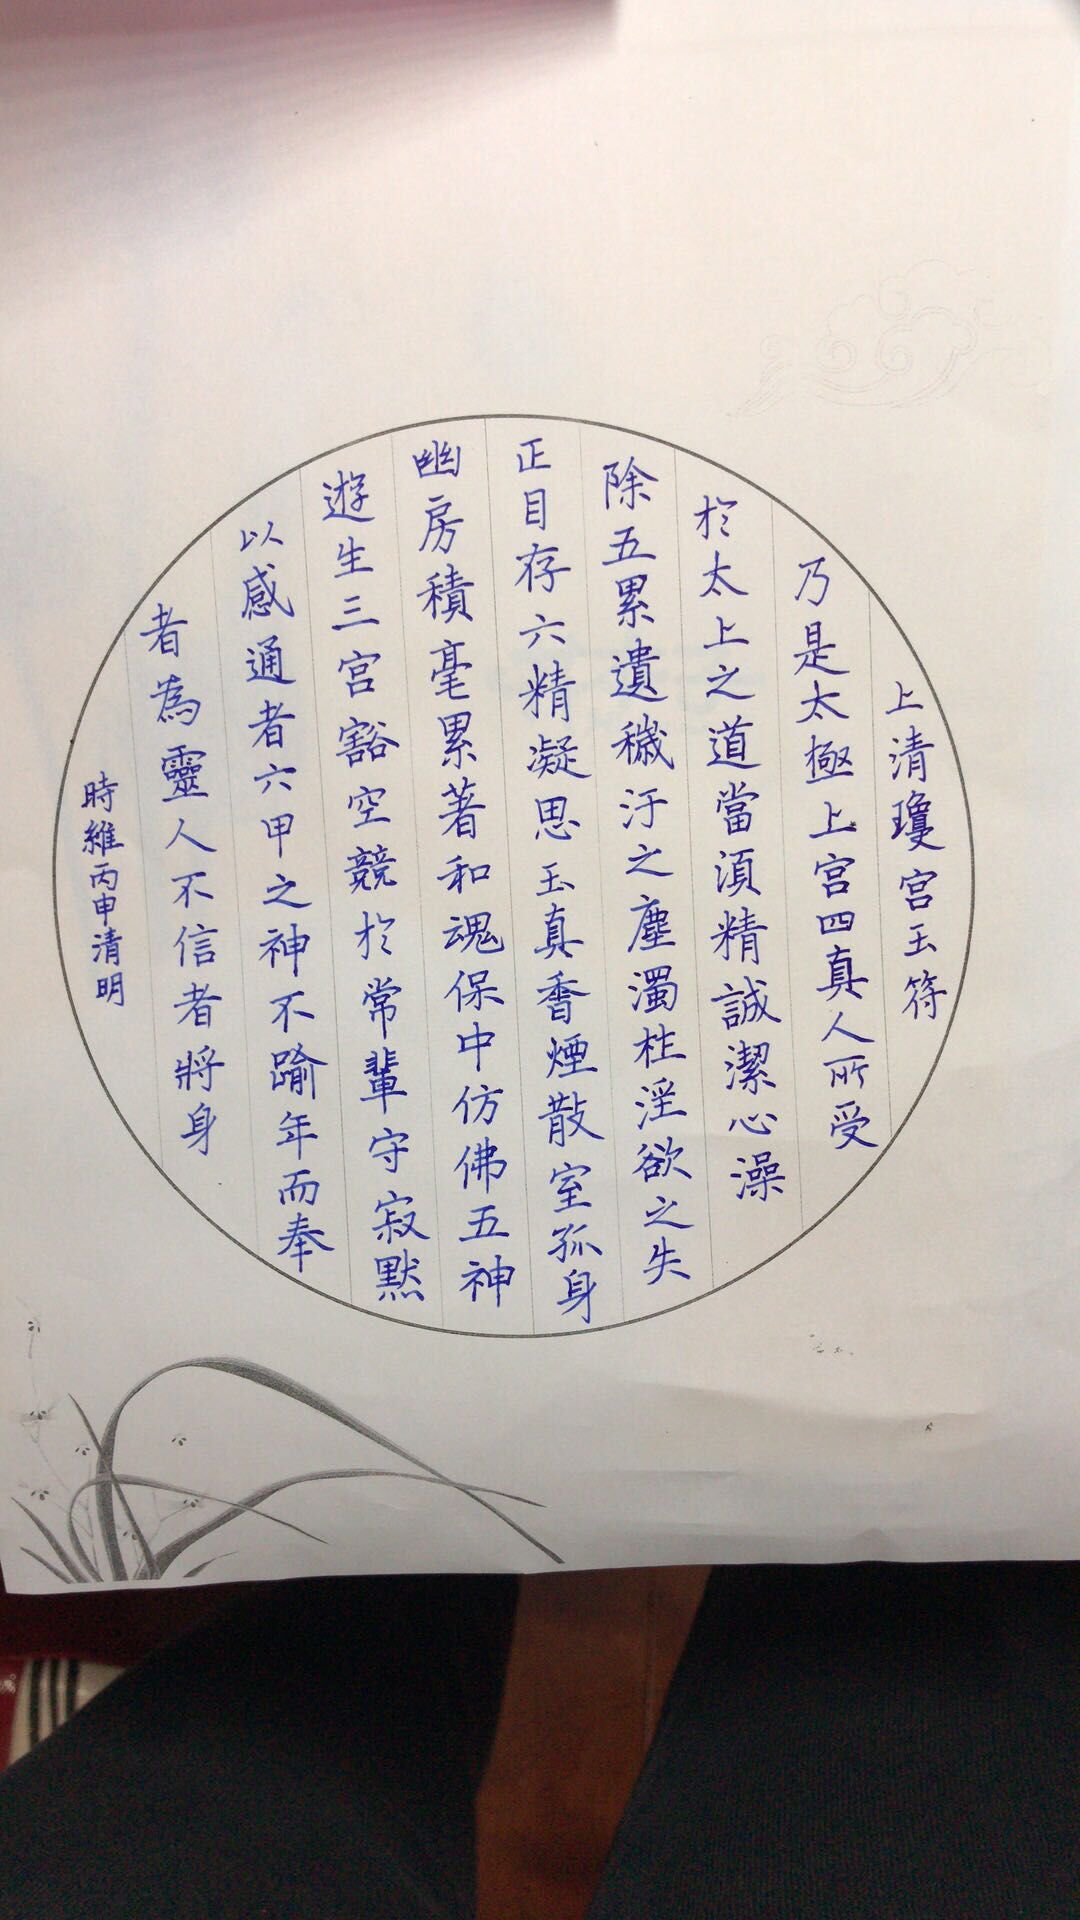 上清瓊宮玉符
乃是太極上宮四真人所受
於太上之道當須精誠潔心澡
除五累遺穢汙之塵濁杜淫欲之失
正目存六精凝思玉真香煙散室孤身
幽房積毫累著和魂保中仿佛五神
遊生三宮豁空競於常輩守寂默
以感通者六甲之神不踰年而奉
者為靈人不信者將身
時維丙申清明